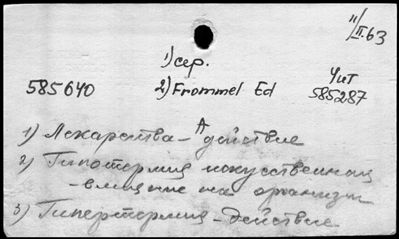 11/II.63
1) сер.
585640
2) Frommel Ed
Чит
585287
1) Лекарства - действие
2) Гипотермия искусственная
- влияние на организм
3) Гипертермия - действие